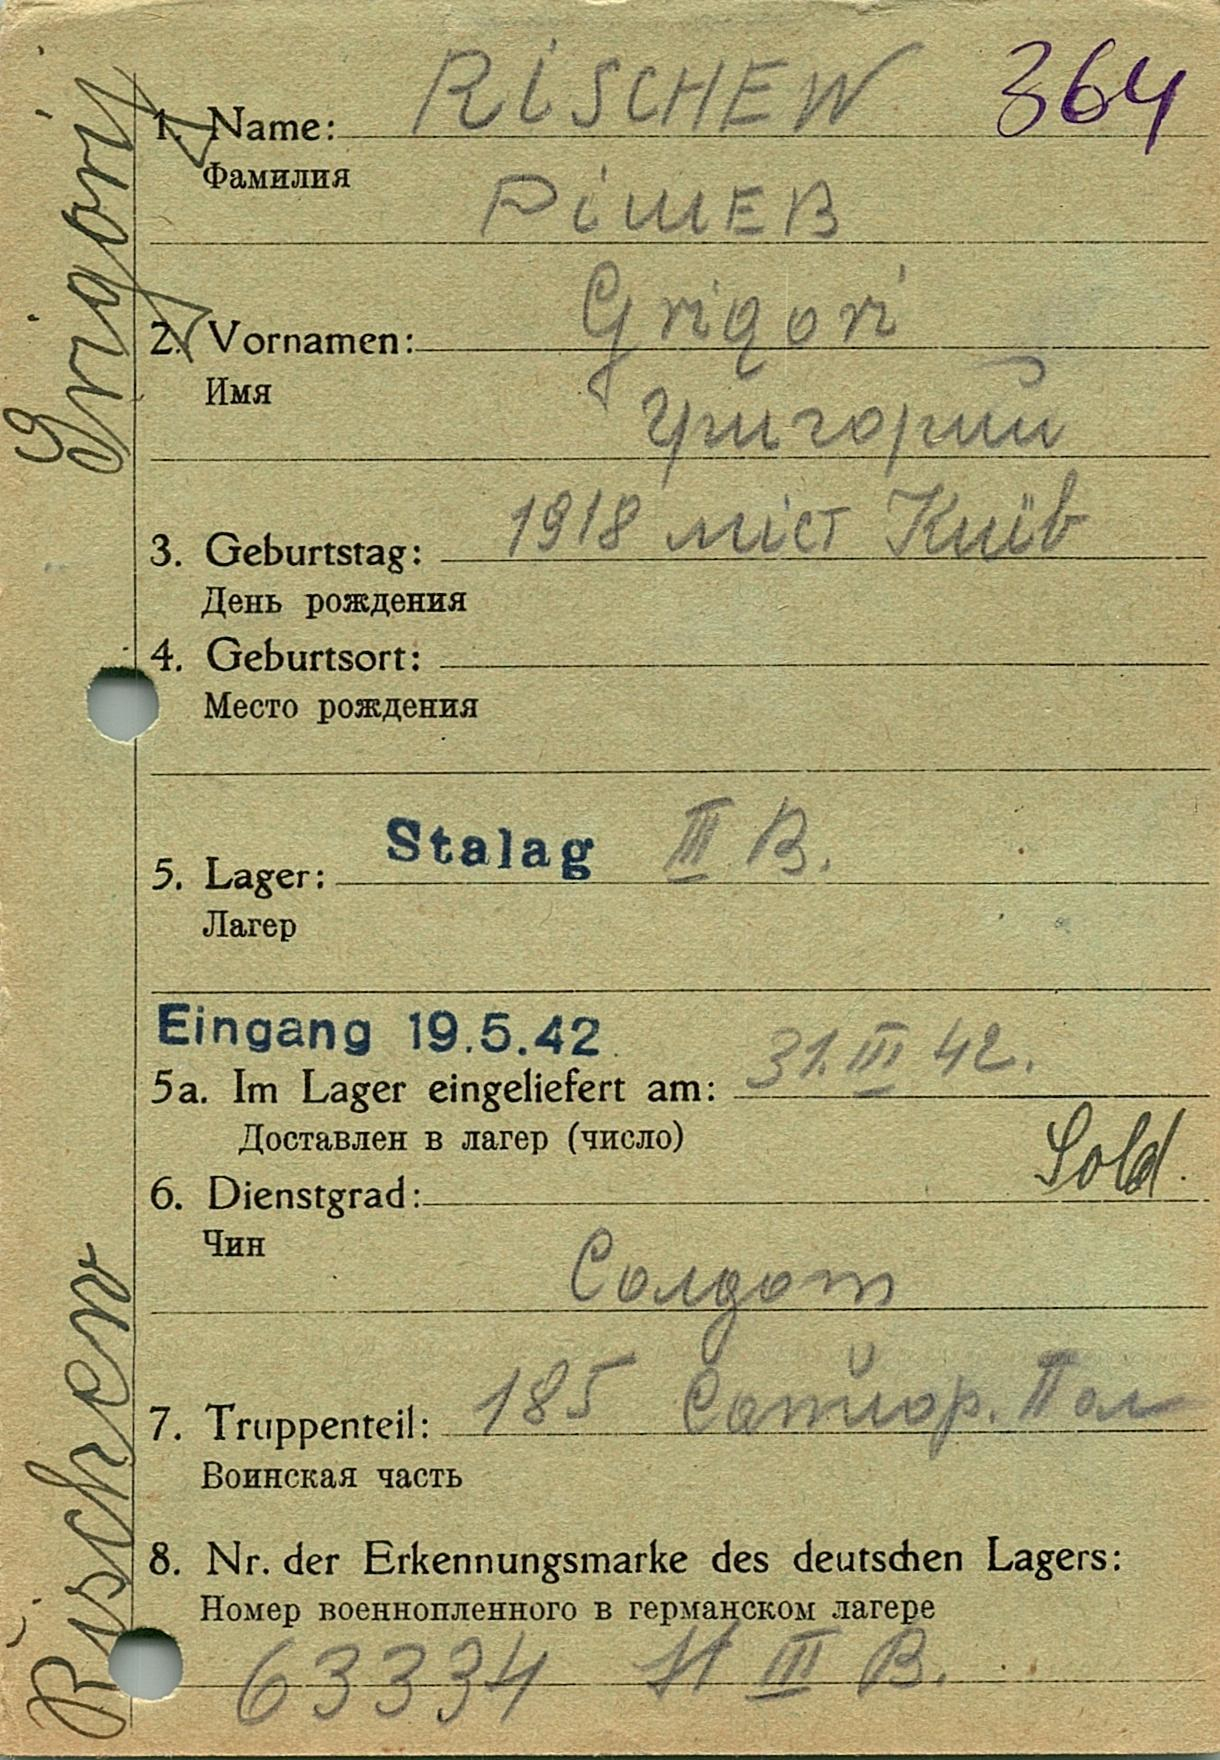 364
1. Name: RISCHEW
Фамилия
РІШЕВ
2. Vornamen: Grigori
Имя
Григорий
3. Geburtstag: 1918 міст Київ
День рождения
4. Geburtsort:
Место рождения
5. Lager: Stalag III B.
Лагер
Eingang 19.5.42
5a. Im Lager eingeliefert am: 31. III 42.
Доставлен в лагер (число)
Sold.
6. Dienstgrad:
Чин
Солдат
7. Truppenteil: 185
Воинская часть
8. Nr. der Erkennungsmarke des deutschen Lagers:
Номер военнопленного в германском лагере
63334 III B.
Rischew Grigorij